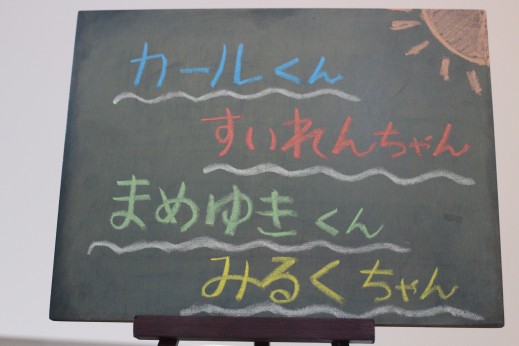 カールくん
すいれんちゃん
まめゆきくん
みるくちゃん